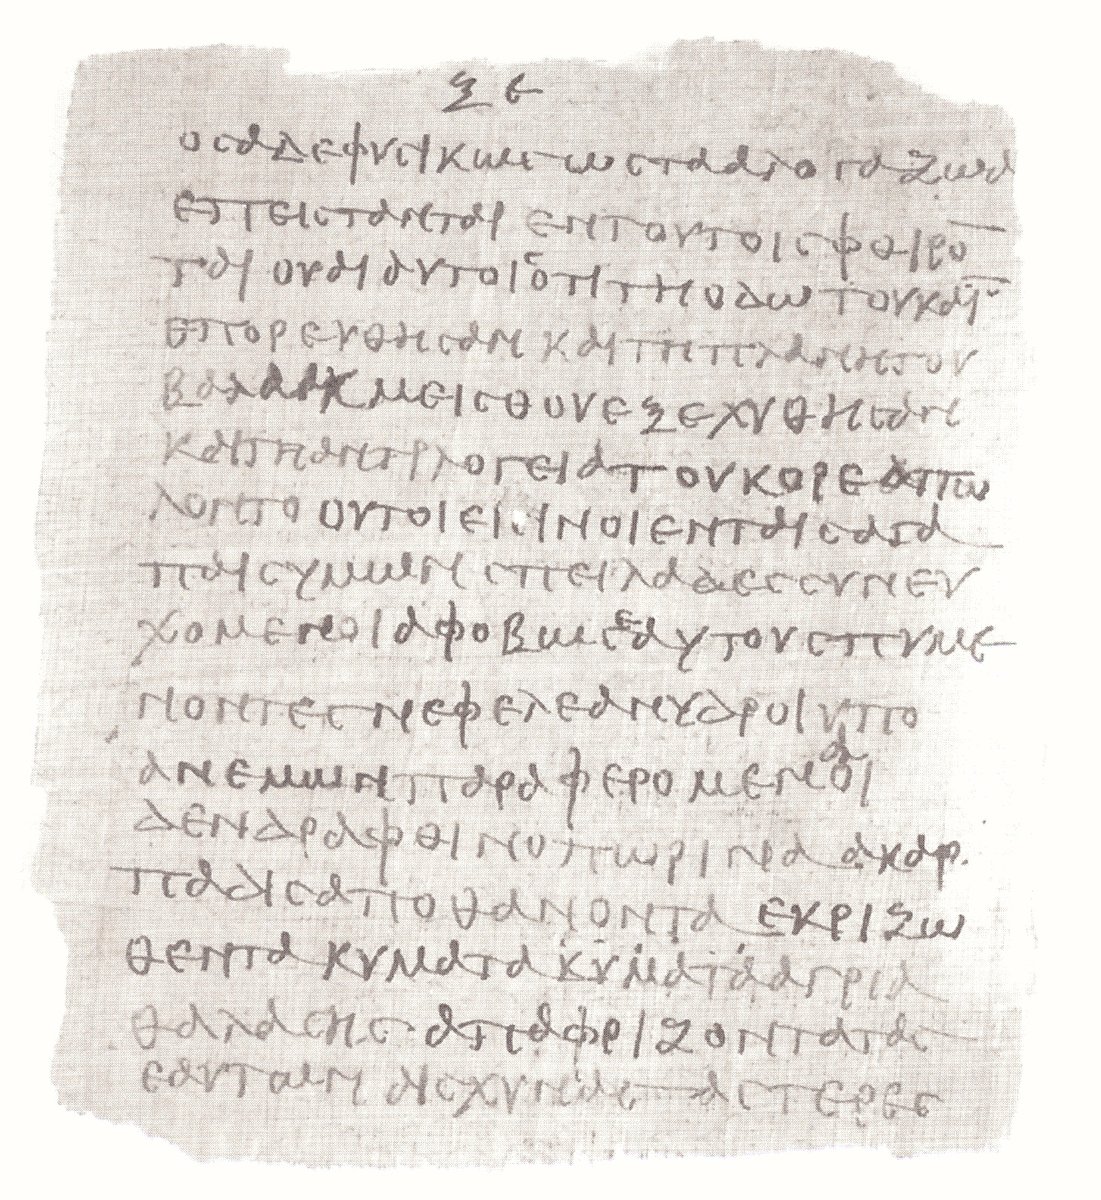 ξε
οσα δε φυσικως ως τα αλογα ζωα
επειστανται εν τουτοις φθιρο̅
ται ουαι αυτοις οτι τη οδω του καϊ̅
επορευθησαν και τη πλανη του
βαλαακ μεισθου εξεχυθησαν
και τη αντιλογεια του κορε απω
λοντο ουτοι εισιν οι εν ταις αγα
παις υμων σπειλαδες συνευ
χομενοι αφοβως εαυτους πυμε
νοντες νεφελε ανυδροι υπο
ανεμων παραφερομεναι
δενδρα φθινοπωρινα ακαρ
πα δις αποθανοντα εκριζω
θεντα κυματα κυματα αγρια
θαλασης απαφριζοντα τας
εαυτων αισχυνας αστερες